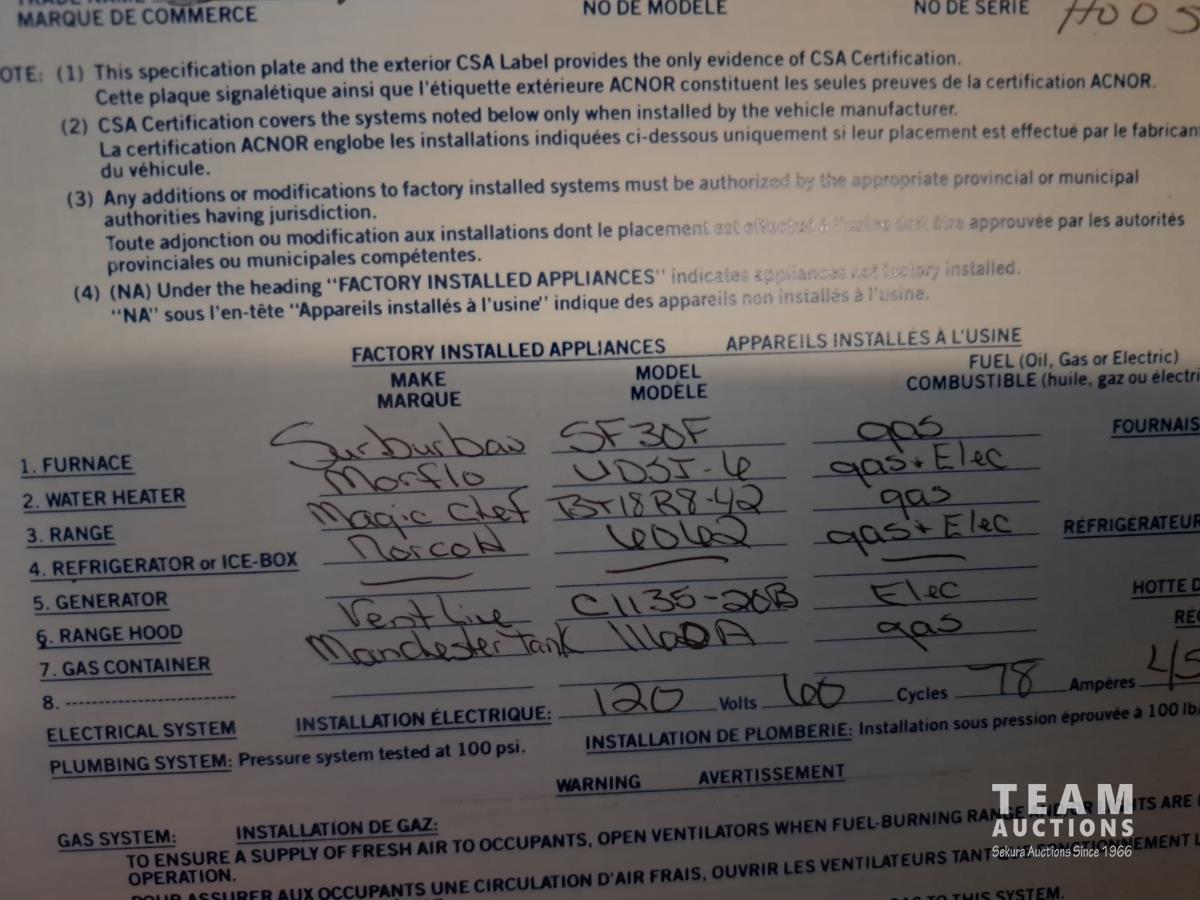 MARQUE DE COMMERCE NO DE MODÈLE NO DE SÉRIE
OTE: (1) This specification plate and the exterior CSA Label provides the only evidence of CSA Certification.
Cette plaque signalétique ainsi que l'étiquette extérieure ACNOR constituent les seules preuves de la certification ACNOR.
(2) CSA Certification covers the systems noted below only when installed by the vehicle manufacturer.
La certification ACNOR englobe les installations indiquées ci-dessous uniquement si leur placement est effectué par le fabricant
du véhicule.
(3) Any additions or modifications to factory installed systems must be authorized by the appropriate provincial or municipal
authorities having jurisdiction.
Toute adjonction ou modification aux installations dont le placement est effectué à l'usine doit être approuvée par les autorités
provinciales ou municipales compétentes.
(4) (NA) Under the heading "FACTORY INSTALLED APPLIANCES" indicates appliances not factory installed.
"NA" sous l'en-tête "Appareils installés à l'usine" indique des appareils non installés à l'usine.
FACTORY INSTALLED APPLIANCES APPAREILS INSTALLÉS À L'USINE
MAKE MODEL FUEL (Oil, Gas or Electric)
MARQUE MODÈLE COMBUSTIBLE (huile, gaz ou électri
1. FURNACE Surburban SF30F gas FOURNAIS
2. WATER HEATER Morflo UDSJ-6 gas + Elec
3. RANGE Magic Chef BT18R8-42 gas
4. REFRIGERATOR or ICE-BOX Norcold 6062 gas + Elec RÉFRIGÉRATEUR
5. GENERATOR
6. RANGE HOOD Ventline C1135-20B Elec HOTTE D
7. GAS CONTAINER Manchester Tank gas RÉC
8.
ELECTRICAL SYSTEM INSTALLATION ÉLECTRIQUE: 120 Volts 60 Cycles 78 Ampères
PLUMBING SYSTEM: Pressure system tested at 100 psi. INSTALLATION DE PLOMBERIE: Installation sous pression éprouvée à 100 lb
WARNING AVERTISSEMENT
GAS SYSTEM: INSTALLATION DE GAZ:
TO ENSURE A SUPPLY OF FRESH AIR TO OCCUPANTS, OPEN VENTILATORS WHEN FUEL-BURNING RANGE ARE
OPERATION.
POUR ASSURER AUX OCCUPANTS UNE CIRCULATION D'AIR FRAIS, OUVRIR LES VENTILATEURS TANT QUE FONCTIONNEMENT
TO THIS SYSTEM.
TEAM
AUCTIONS
Sekura Auctions Since 1966